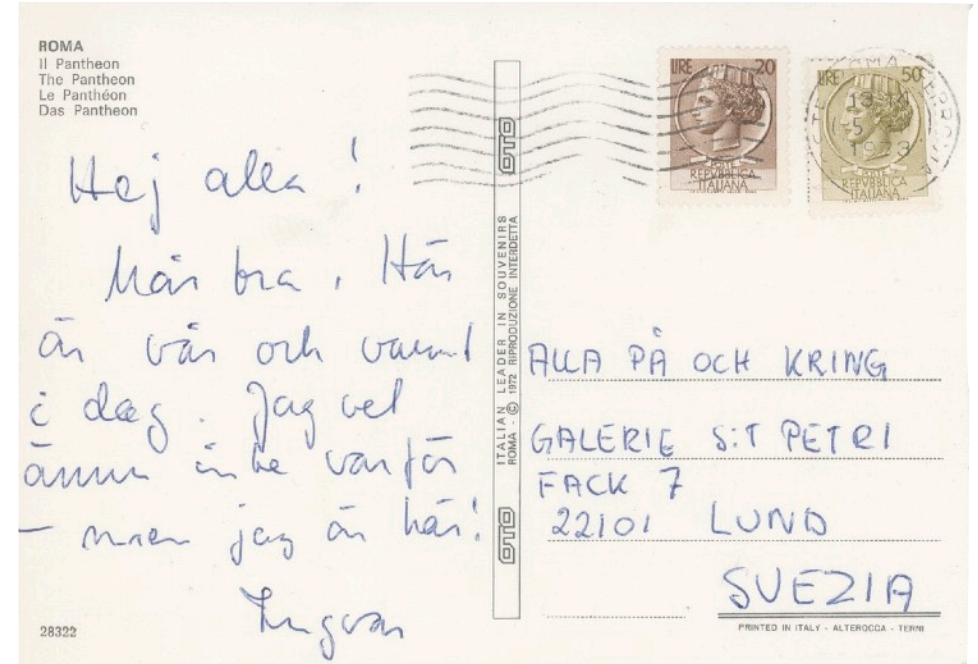 ROMA
Il Pantheon
The Pantheon
Le Panthéon
Das Pantheon
Hej alla!
Mår bra. Här
är vår och varmt
i dag. Jag vet
ännu inte varför
– men jag är här!
Ingvar
28322
OTO
ITALIAN LEADER IN SOUVENIRS
ROMA - © 1972 RIPRODUZIONE INTERDETTA
OTO
LIRE 20
POSTE
REPVBBLICA
ITALIANA
LIRE 50
POSTE
REPVBBLICA
ITALIANA
ROMA FERROVIA
1973
ALLA PÅ OCH KRING
GALERIE S:T PETRI
FACK 7
22101 LUND
SVEZIA
PRINTED IN ITALY - ALTEROCCA - TERNI